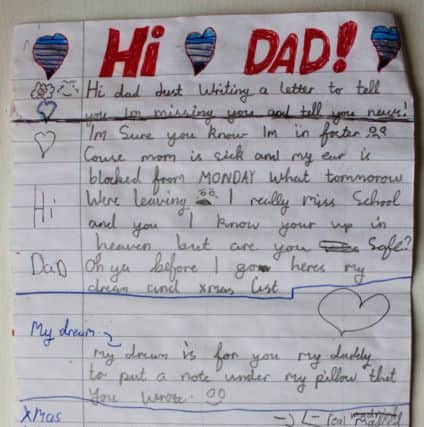 Hi DAD!
Hi dad Just Writing a letter to tell
you Im missing you and tell you news!
I'm Sure you know Im in foster
Couse mom is sick and my ear is
blocked from MONDAY What tommorow
Were leaving I really miss School
Hi
and you I know your up in
heaven but are you Safe?
Dad
Oh ya before I go heres my
dream and xmas list
My dream
my dream is for you my daddy
to put a note under my pillow that
you wrote
xmas